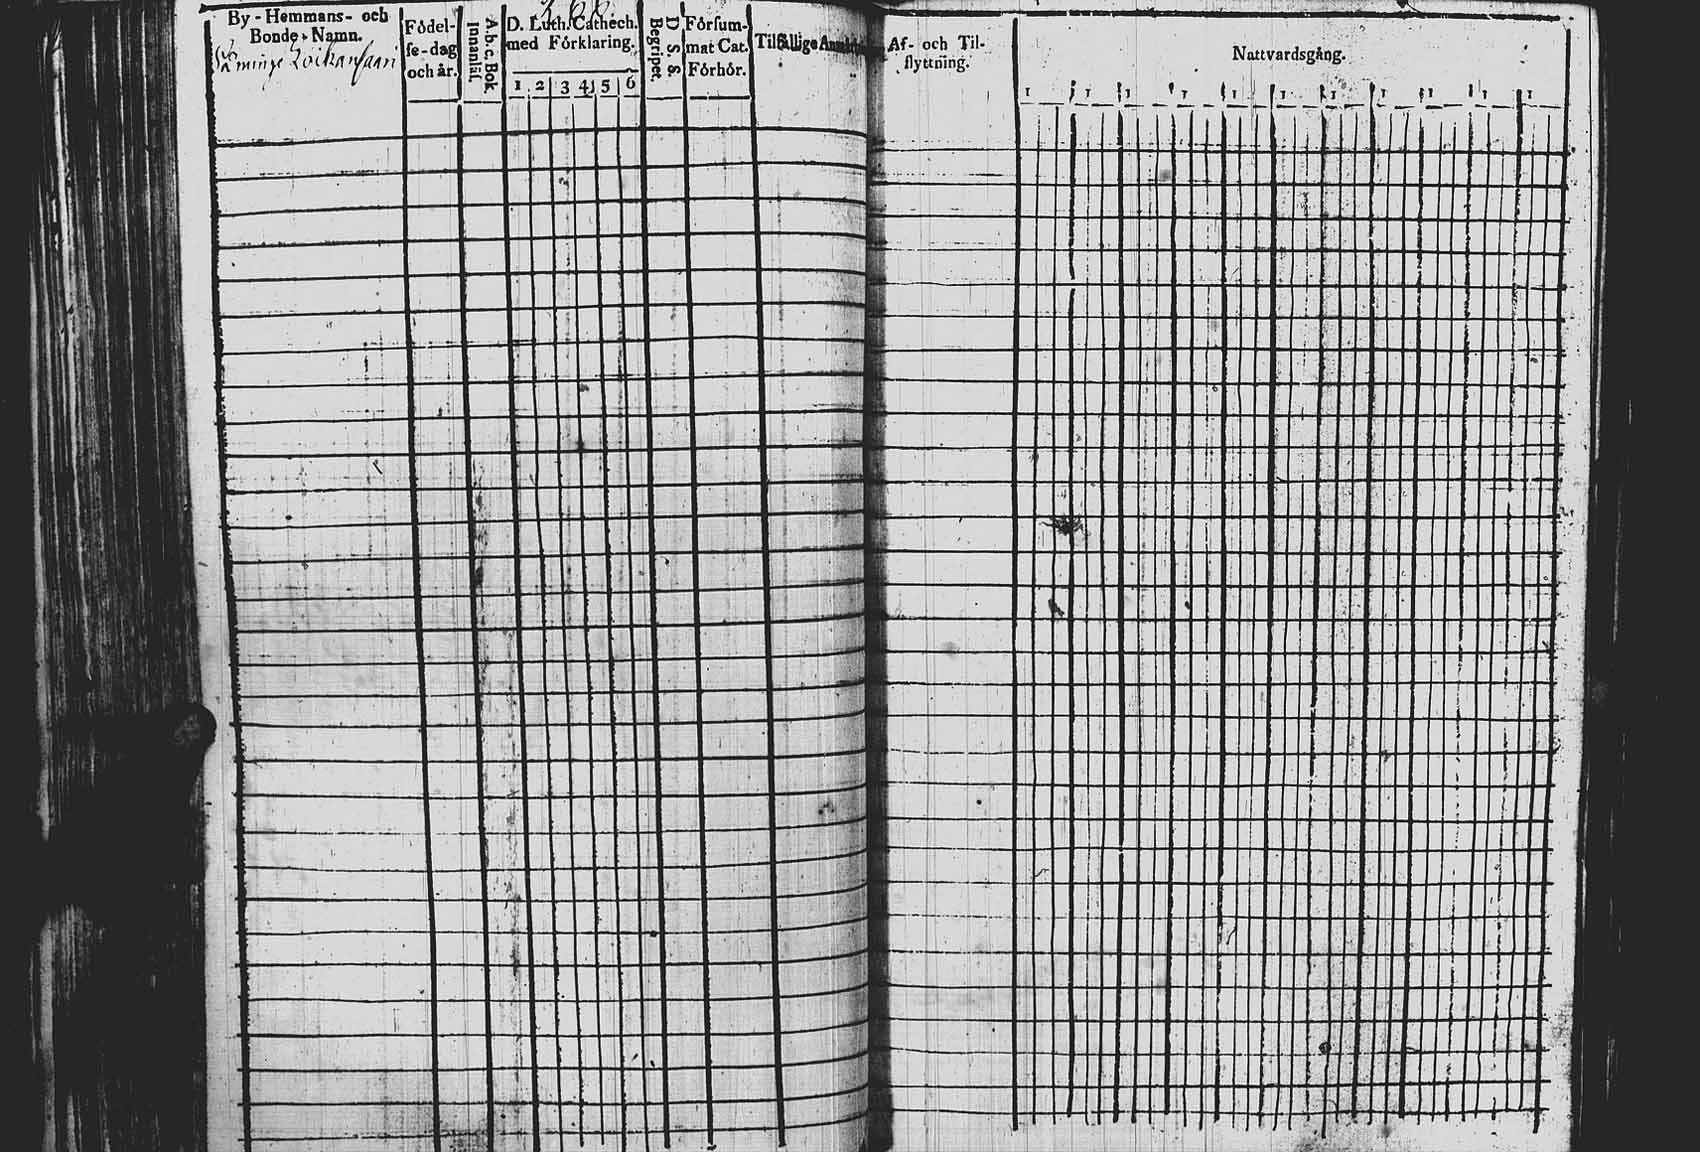 By - Hemmans- och
Bonde - Namn.
Födel-
se-dag
och år.
A.b.c. Bok
Innanläs.
D. Luth. Cathech.
med Förklaring.
1 2 3 4 5 6
D. S. S.
Begripet.
Försum-
mat Cat.
Förhör.
Tilfällige
Af- och Til-
flyttning.
Nattvardsgång.
1 1 1 1 1 1 1 1 1 1 1